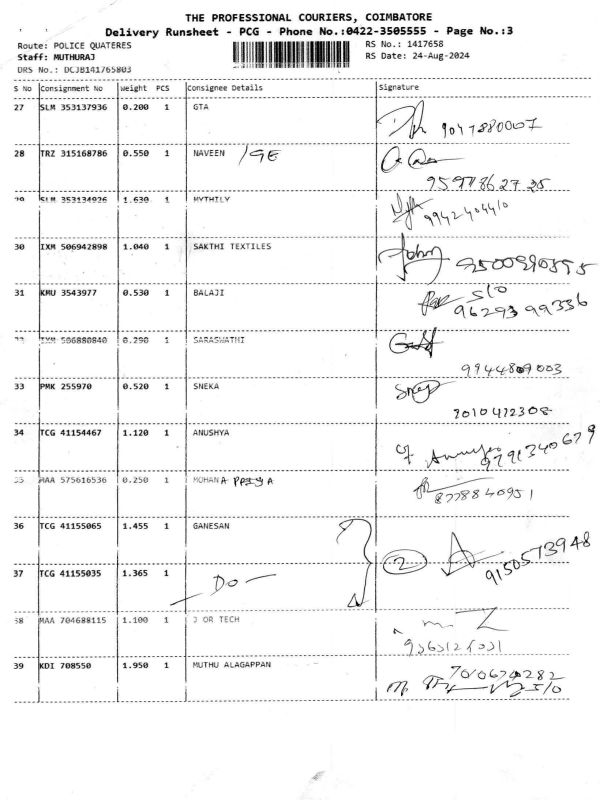 THE PROFESSIONAL COURIERS, COIMBATORE
Delivery Runsheet - PCG - Phone No.:0422-3505555 - Page No.:3
Route: POLICE QUATERES
RS No.: 1417658
Staff: MUTHURAJ
RS Date: 24-Aug-2024
DRS No.: DCJB141765803
S No Consignment No Weight PCS Consignee Details Signature
27 SLM 353137936 0.200 1 GTA
28 TRZ 315168786 0.550 1 NAVEEN /GE
29 SLM 353134926 1.630 1 MYTHILY
9942404410
30 IXM 506942898 1.040 1 SAKTHI TEXTILES
31 KMU 3543977 0.530 1 BALAJI
S/O
9629399336
32 IXM 506880840 0.290 1 SARASWATHI
9944809003
33 PMK 255970 0.520 1 SNEKA
34 TCG 41154467 1.120 1 ANUSHYA
9791340679
35 MAA 575616536 0.250 1 MOHANA PRIYA
8778840951
36 TCG 41155065 1.455 1 GANESAN
2
9150573948
37 TCG 41155035 1.365 1 - Do -
38 MAA 704688115 1.100 1 J OR TECH
39 KDI 708550 1.950 1 MUTHU ALAGAPPAN
S/O